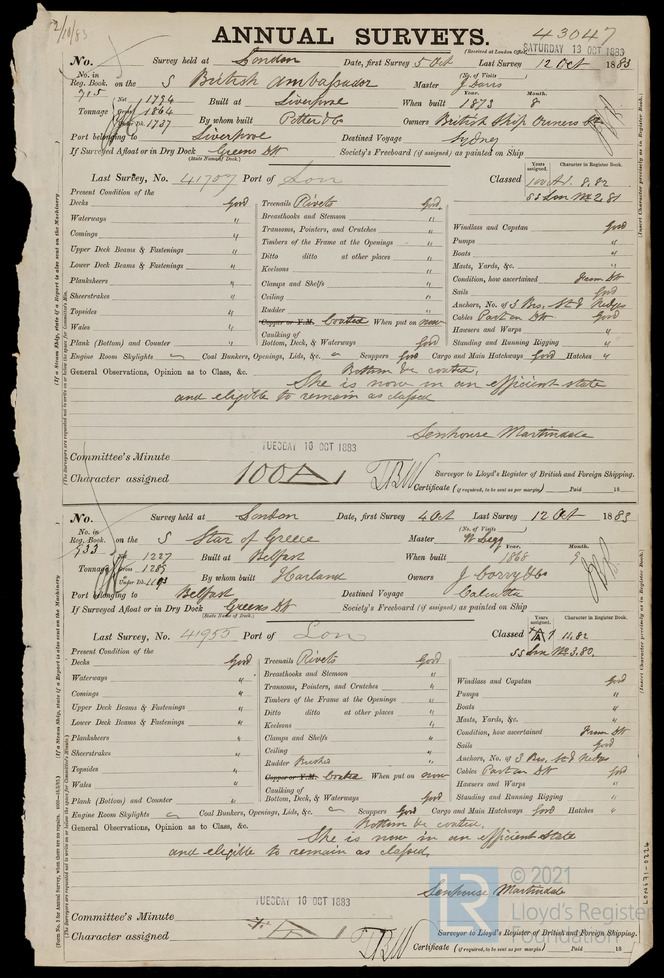 2/10/83
ANNUAL SURVEYS.
43047
(Received at London Office
SATURDAY 13 OCT 1883
No. Survey held at London Date, first Survey 5 Oct Last Survey 12 Oct 1883
No. in Reg. Book. 715 on the S British Ambassador Master J Davis (No. of Visits)
Tonnage Net 1794 Gross 1864 Under Dk. 1727 Built at Liverpool When built Year. 1873 Month. 8
By whom built Potter & Co Owners British Ship Owners Co
Port belonging to Liverpool Destined Voyage Sydney
If Surveyed Afloat or in Dry Dock Greens DK Society's Freeboard (if assigned) as painted on Ship
(State Name of Dock.)
Last Survey, No. 41707 Port of Lon Classed Years assigned. 100A1. Character in Register Book. 8.82
SS Lon No 2.81
Present Condition of the
Decks Good Treenails Rivets Good
Waterways " Breasthooks and Stemson " Windlass and Capstan Good
Comings " Transoms, Pointers, and Crutches " Pumps "
Upper Deck Beams & Fastenings " Timbers of the Frame at the Openings " Boats "
Lower Deck Beams & Fastenings " Ditto ditto at other places " Masts, Yards, &c. "
Planksheers " Keelsons " Condition, how ascertained From DK
Sheerstrakes " Clamps and Shelfs " Sails Good
Topsides " Ceiling " Anchors, No. of 3 Brs, St & Kedges
Wales " Rudder " Cables Part on DK Good
Copper or Y.M. Coated When put on now Hawsers and Warps "
Plank (Bottom) and Counter " Caulking of Bottom, Deck, & Waterways Good Standing and Running Rigging "
Engine Room Skylights Coal Bunkers, Openings, Lids, &c. Scuppers Good Cargo and Main Hatchways Good Hatches "
General Observations, Opinion as to Class, &c. Bottom be coated.
She is now in an efficient state
and eligible to remain as classed
Senhouse Martindale
TUESDAY 16 OCT 1883
Committee's Minute
Character assigned 100A1 TBW Surveyor to Lloyd's Register of British and Foreign Shipping.
Certificate (if required, to be sent as per margin) Paid 18
No. Survey held at London Date, first Survey 4 Oct Last Survey 12 Oct 1883
No. in Reg. Book. 933 on the S Star of Greece Master W Legg (No. of Visits)
Tonnage Net 1227 Gross 1289 Under Dk. Built at Belfast When built Year. 1868 Month. 9
By whom built Harland Owners J Corry & Co
Port belonging to Belfast Destined Voyage Calcutta
If Surveyed Afloat or in Dry Dock Greens DK Society's Freeboard (if assigned) as painted on Ship
(State Name of Dock.)
Last Survey, No. 41955 Port of Lon Classed Years assigned. A 1 Character in Register Book. 11.82
SS Lon No 3.80.
Present Condition of the
Decks Good Treenails Rivets Good
Waterways " Breasthooks and Stemson " Windlass and Capstan Good
Comings " Transoms, Pointers, and Crutches " Pumps "
Upper Deck Beams & Fastenings " Timbers of the Frame at the Openings " Boats "
Lower Deck Beams & Fastenings " Ditto ditto at other places " Masts, Yards, &c. "
Planksheers " Keelsons " Condition, how ascertained From DK
Sheerstrakes " Clamps and Shelfs " Sails Good
Topsides " Ceiling " Anchors, No. of 3 Brs, St & Kedges
Wales " Rudder " Cables Part on DK Good
Copper or Y.M. Coated When put on now Hawsers and Warps "
Plank (Bottom) and Counter " Caulking of Bottom, Deck, & Waterways Good Standing and Running Rigging "
Engine Room Skylights Coal Bunkers, Openings, Lids, &c. Scuppers Good Cargo and Main Hatchways Good Hatches "
General Observations, Opinion as to Class, &c. Bottom be coated.
She is now in an efficient state
and eligible to remain as classed.
Senhouse Martindale
TUESDAY 16 OCT 1883
Committee's Minute
Character assigned A 1 TBW Surveyor to Lloyd's Register of British and Foreign Shipping.
Certificate (if required, to be sent as per margin) Paid 18
© 2021
LR Lloyd's Register
Foundation
(Insert Character precisely as in Register Book.)
(Insert Character precisely as in Register Book.)